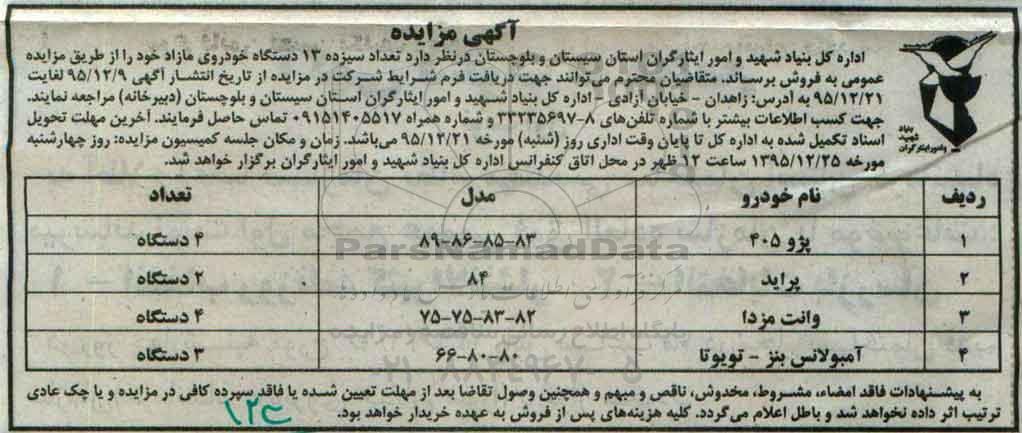 آگهی مزایده
اداره کل بنیاد شهید و امور ایثارگران استان سیستان و بلوچستان درنظر دارد تعداد سیزده ۱۳ دستگاه خودروی مازاد خود را از طریق مزایده
عمومی به فروش برساند. متقاضیان محترم می‌توانند جهت دریافت فرم شرایط شرکت در مزایده از تاریخ انتشار آگهی ۹۵/۱۲/۹ لغایت
۹۵/۱۲/۲۱ به آدرس: زاهدان - خیابان آزادی - اداره کل بنیاد شهید و امور ایثارگران استان سیستان و بلوچستان (دبیرخانه) مراجعه نمایند.
جهت کسب اطلاعات بیشتر با شماره تلفن‌های ۸-۳۳۲۳۵۶۹۷ و شماره همراه ۰۹۱۵۱۴۰۵۵۱۷ تماس حاصل فرمایند. آخرین مهلت تحویل
اسناد تکمیل شده به اداره کل تا پایان وقت اداری روز (شنبه) مورخه ۹۵/۱۲/۲۱ می‌باشد. زمان و مکان جلسه کمیسیون مزایده: روز چهارشنبه
مورخه ۱۳۹۵/۱۲/۲۵ ساعت ۱۲ ظهر در محل اتاق کنفرانس اداره کل بنیاد شهید و امور ایثارگران برگزار خواهد شد.
بنیاد
شهید
وامور ایثارگران
ردیف نام خودرو مدل تعداد
۱ پژو ۴۰۵ ۸۳-۸۵-۸۶-۸۹ ۴ دستگاه
ParsNamadData
۲ پراید ۸۴ ۲ دستگاه
۳ وانت مزدا ۸۲-۸۳-۷۵-۷۵ ۴ دستگاه
۴ آمبولانس بنز - تویوتا ۸۰-۸۰-۶۶ ۳ دستگاه
به پیشنهادات فاقد امضاء، مشروط، مخدوش، ناقص و مبهم و همچنین وصول تقاضا بعد از مهلت تعیین شده یا فاقد سپرده کافی در مزایده و یا چک عادی
ترتیب اثر داده نخواهد شد و باطل اعلام می‌گردد. کلیه هزینه‌های پس از فروش به عهده خریدار خواهد بود.